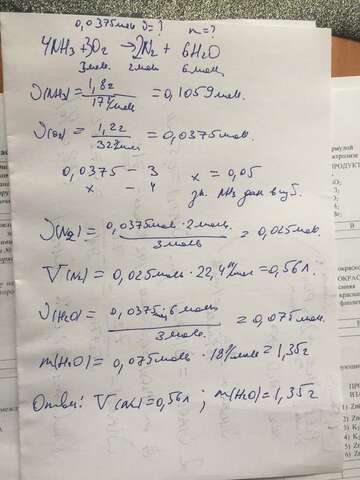 0,0375моль V=? m=?
4NH3 + 3O2 → 2N2 + 6H2O
3моль 2моль 6моль
ν(NH3) = 1,8г / 17г/моль = 0,1059моль
ν(O2) = 1,2г / 32г/моль = 0,0375моль
0,0375 – 3 x = 0,05
x – 4 NH3 дан в изб.
ν(N2) = 0,0375моль · 2моль / 3моль = 0,025моль
V(N2) = 0,025моль · 22,4л/моль = 0,56л.
ν(H2O) = 0,0375 · 6моль / 3моль = 0,075моль
m(H2O) = 0,075моль · 18г/моль = 1,35г
Ответ: V(N2) = 0,56л ; m(H2O) = 1,35г